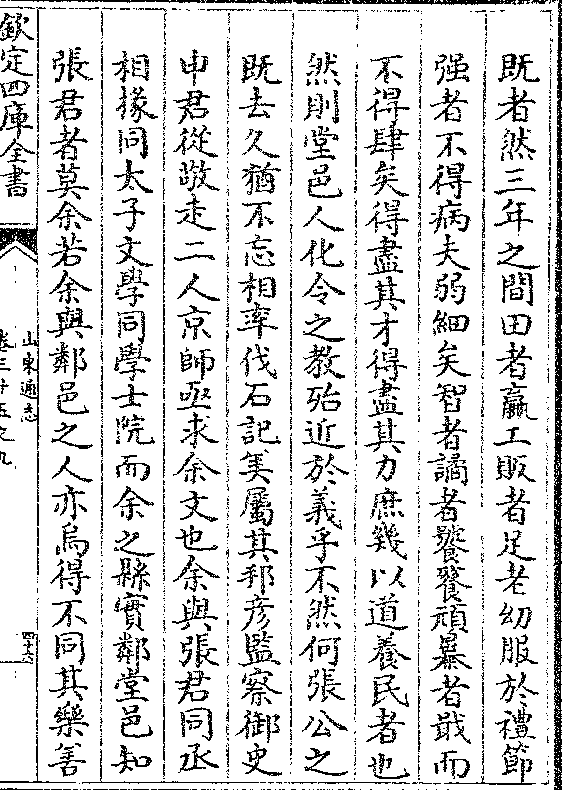 既者然三年之間田者贏工販者足老幼服於禮節
强者不得病夫弱細矣智者譎者饕餮頑暴者戢而
不得肆矣得盡其才得盡其力庶幾以道養民者也
然則堂邑人化令之教殆近於義乎不然何張公之
既去久猶不忘相率伐石記美屬其邦彦監察御史
申君從敬走二人京師亟求余文也余與張君同丞
相掾同太子文學同學士院而余之縣實鄰堂邑知
張君者莫余若余與鄰邑之人亦烏得不同其樂善
欽定四庫全書
山東通志
卷三十五之九